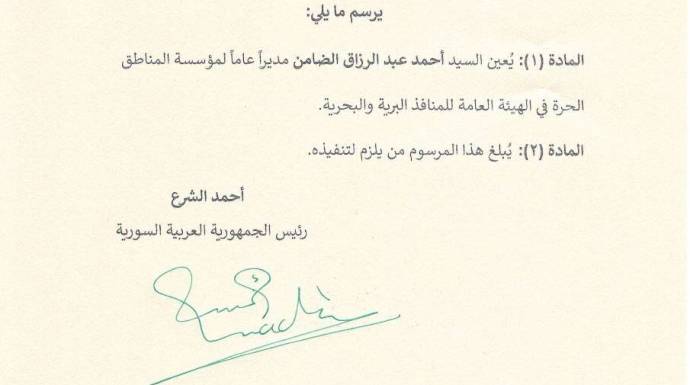 يرسم ما يلي:
المادة (١): يُعين السيد أحمد عبد الرزاق الضامن مديراً عاماً لمؤسسة المناطق
الحرة في الهيئة العامة للمنافذ البرية والبحرية.
المادة (٢): يُبلغ هذا المرسوم من يلزم لتنفيذه.
أحمد الشرع
رئيس الجمهورية العربية السورية